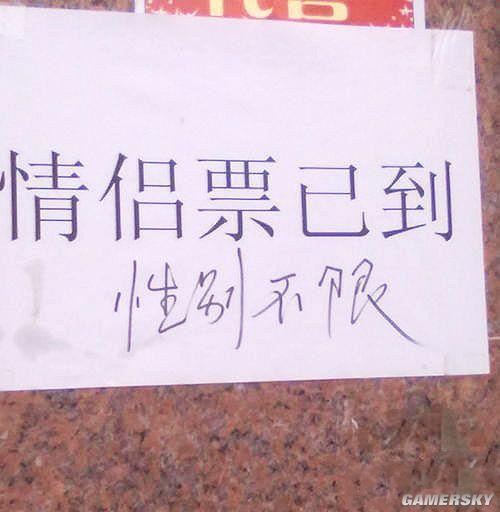 情侣票已到
性别不限
GAMERSKY